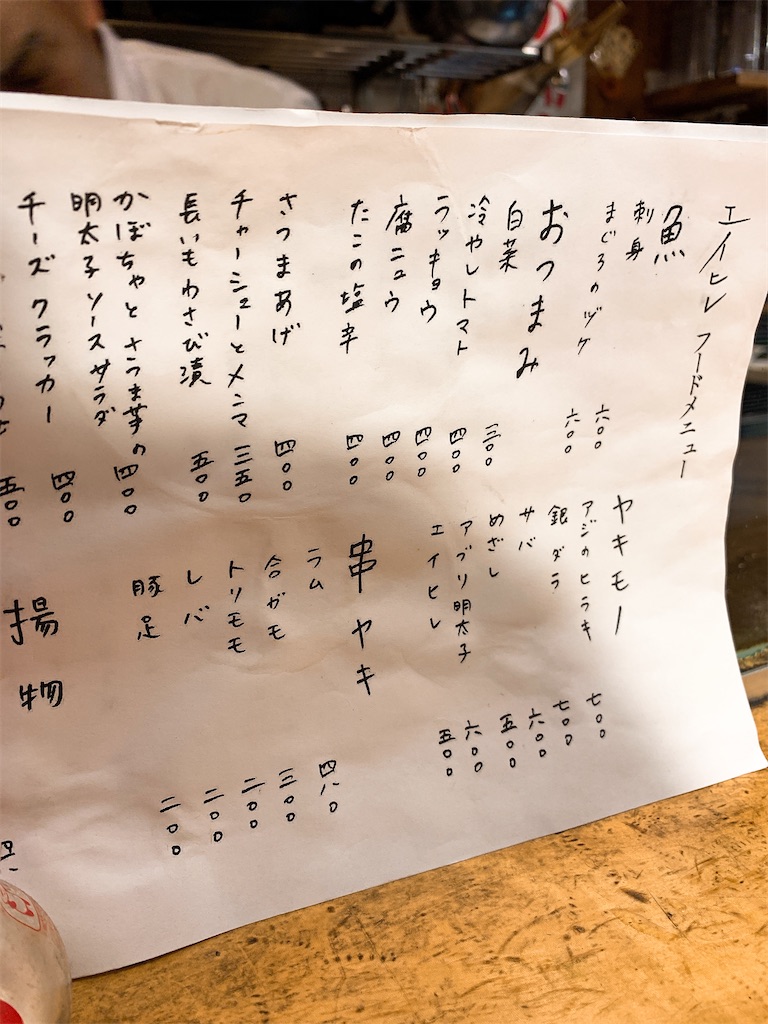 エイヒレ フードメニュー
魚
刺身 六〇〇
まぐろのヅケ 六〇〇
おつまみ
白菜 三〇〇
冷やしトマト 四〇〇
ラッキョウ 四〇〇
腐ニュウ 四〇〇
たこの塩辛 四〇〇
さつまあげ 四〇〇
チャーシューとメンマ 三五〇
長いもわさび漬 五〇〇
かぼちゃとさつま芋の
明太子ソースサラダ 四〇〇
チーズクラッカー 四〇〇
五〇〇
ヤキモノ
アジのヒラキ 七〇〇
銀ダラ 七〇〇
サバ 六〇〇
めざし 五〇〇
アブリ明太子 六〇〇
エイヒレ 五〇〇
串ヤキ
ラム 四八〇
合ガモ 三〇〇
トリモモ 二〇〇
レバ 二〇〇
豚足 二〇〇
揚物